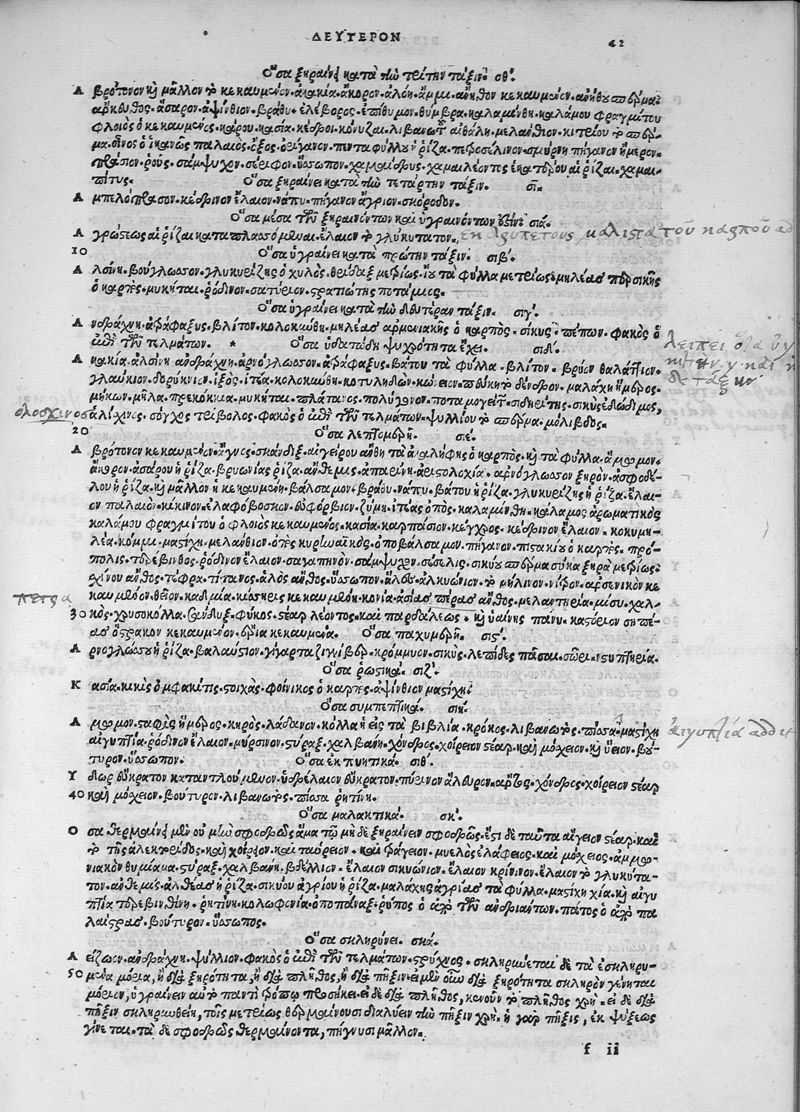 ΔΕΥΤΕΡΟΝ 42
Ὅσα ξηραίνει κατὰ τὴν τρίτην τάξιν. σθʹ.
Α βρότονον καὶ μᾶλλον τὸ κεκαυμένον· ἀκακία· ἄκορον· ἀλόη· ἄμμι· ἄνηθον κεκαυμένον· ἀνήθου σπέρμα·
ἄρκευθος· ἄσαρον· ἀψίνθιον· βράθυ· ἐλέβορος· ἐπίθυμον· θύμβρα· καλαμίνθη· καλάμου φραγμίτου
φλοιὸς ὁ κεκαυμένος· κάρου· κασία· κέδροι· κόνυζαι· λιβανωτοῦ αἰθάλη· μελάνθιον· κιτρίου τὸ σπέρ
μα· οἶνος ὁ ἱκανῶς παλαιός· ὄξος· ὀρίγανον· πενταφύλλου ἡ ῥίζα· πετροσέλινον· σμύρνη· πήγανον ἥμερον·
πράσιον· ῥοῦς· σάμψυχον· σέριφον· ὕσσωπον· χαμαίδρυς· χαμαιλέοντος ἑκατέρου αἱ ῥίζαι· χαμαι
πίτυς. Ὅσα ξηραίνει κατὰ τὴν τετάρτην τάξιν. σι.
Α μπελόπρασον· κέδρινον ἔλαιον· νάπυ· πήγανον ἄγριον· σκόροδον.
Ὅσα μέσα τῶν ξηραινόντων καὶ ὑγραινόντων ἐστίν. σια.
Α γρώστεως αἱ ῥίζαι καταπλασσόμεναι· ἔλαιον τὸ γλυκύτατον.
10 Ὅσα ὑγραίνει κατὰ πρώτην τάξιν. σιβʹ.
Α λσίνη· βούγλωσσον· γλυκυρίζης ὁ χυλός· θρίδαξ μετρίως· ἴου τὰ φύλλα μετρίως· μηλέας περσικῆς
ὁ καρπός· μυκῆται· ῥόδινον· σατύριον· στρατιώτης ποτάμιος.
Ὅσα ὑγραίνει κατὰ τὴν δευτέραν τάξιν. σιγʹ.
Α νδράχνη· ἀτράφαξυς· βλίτον· κολοκύνθη· μηλέας ἀρμενιακῆς ὁ καρπός· σίκυς· πέπων· φακὸς ὁ
ἐπὶ τῶν τελμάτων. * Ὅσα ὑδατώδη ψυχρότητα ἔχει. σιδʹ.
Α κακία· ἀλσίνη· ἀνδράχνη· ἀρνόγλωσσον· ἀτράφαξυς· βάτου τὰ φύλλα· βλίτον· βρύον θαλάττιον·
γλαύκιον· δορύκνιον· ἰξός· ἰτέα· κολοκύνθη· κοτυληδών· κώνειον· τὸ δένδρον· μαλάχη ἥμερος·
μήκων· μῆλα· πρεκόκκια· μυκῆται· πλάτανος· πολύγονον· ποταμογείτων· σιδηρίτης· σίκυς ἐδώδιμος·
ἁλίχνος· σόγχος· τρίβολος· φακὸς ὁ ἐπὶ τῶν τελμάτων· ψυλλίου τὸ σπέρμα· μόλιβδος·
20 Ὅσα λεπτομερῆ. σιε.
Α βρότονον κεκαυμένον· ἄγνος· σκάνδιξ· αἰγείρου ἄνθη· τὰ ἀκαλήφης ὁ καρπός· καὶ τὰ φύλλα· ἄμωμον·
ἄκορον· ἀσάρου ἡ ῥίζα· βρυωνίας ῥίζα· ἀνθεμίς· ἀπαρίνη· ἀριστολοχία· ἀρνόγλωσσον ξηρόν· ἀσφοδέ
λου ἡ ῥίζα· καὶ μᾶλλον ἡ κεκαυμένη· βάλσαμον· βράθυ· νάπυ· βάτου ἡ ῥίζα· γλυκυρίζης ἡ ῥίζα· ἔλαι
ον παλαιόν· κίκινον· ἐλαφόβοσκον· εὐφόρβιον· ζύμη· ἰτέας ὀπός· καλαμίνθη· κάλαμος ἀρωματικός·
καλάμου φραγμίτου ὁ φλοιὸς κεκαυμένος· κασία· καρπάσιον· κέγχρος· κέδρινον ἔλαιον· κοκυμη
λέα· κόμμι· μαστίχη· μελάνθιον· ὀπὸς κυρηναϊκός· ὀποβάλσαμον· πήγανον· πιστακίου ὁ καρπός· πρό
πολις· τερέβινθος· ῥόδινον ἔλαιον· σαγαπηνόν· σάμψυχον· σέσελις· σικύου σπέρμα· σῦκα ξηρὰ μετρίως·
σχίνου ἄνθος· τέφρα· τίτανος· ἁλὸς ἄνθος· ὕσσωπον· ἁλκυώνιον τὸ μήλινον· νίτρον· ἀρσενικὸν κε
καυμένον· θεῖον· καδμία· κίσσηρις κεκαυμένη· κονία· ἀσίας πέτρας ἄνθος· μελαντηρία· μίσυ· χαλ
30 κός· χρυσόκολλα· φῦκος· στέαρ λέοντος· καὶ παρδάλεως· καὶ ὑαίνης πάνυ· καστόριον· σηπέ
ας ὄστρακον κεκαυμένον· ὄστρια κεκαυμένα. Ὅσα παχυμερῆ. σιςʹ.
Α ρνογλώσσου ἡ ῥίζα· βαλαύστιον· γίγαρτα· ζιγγίβερ· κρόμμυον· σίκυς· λεπίδες πᾶσαι· στυπτηρία.
Ὅσα ῥωστικά. σιζʹ.
Κ ασία· κικὶς ὀμφακῖτις· στοιχάς· φοίνικος ὁ καρπός· ἀψίνθιον· μαστίχη.
Ὅσα συμπεπτικά. σιη.
Α μωμον· σταφὶς ἥμερος· κηρός· λάδανον· κόλλα ἡ εἰς τὰ βιβλία· κρόκος· λιβανωτός· πίσσα· μαστίχη
αἰγυπτία· ῥόδινον ἔλαιον· μύρσινον· στύραξ· χαλβάνη· χόνδρος· χοίρειον στέαρ· καὶ μόχειον· καὶ ὕειον· βού
τυρον· ὕσσωπον. Ὅσα ἐκπυητικά. σιθʹ.
Υ δωρ εὔκρατον καταντλούμενον· ὑδρέλαιον εὔκρατον· πύρινον ἄλευρον· ἄρτος· χόνδρος· χοίρειον στέαρ
40 καὶ μόχειον· βούτυρον· λιβανωτός· πίσσα· ῥητίνη.
Ὅσα μαλακτικά. σκʹ.
Ο σα θερμαίνει μὲν οὐ μὴν σφοδρῶς ἅμα τῷ μὴ δὲ ξηραίνειν σφοδρῶς· ἔστι δὲ ταῦτα αἴγειον στέαρ· καὶ
τὸ τῆς ἀλεκτορίδος· καὶ χοίρειον· καὶ ταύρειον· καὶ τράγειον· μυελὸς ἐλάφειος· καὶ μόχειος· ἀμμω
νιακὸν θυμίαμα· στύραξ· χαλβάνη· βδέλλιον· ἔλαιον σικυώνιον· ἔλαιον κρίνινον· ἔλαιον τὸ γλυκύτα
τον· ἀνθεμίς· ἀλθέας ἡ ῥίζα· σικύου ἀγρίου ἡ ῥίζα· μαλάχης ἀγρίας τὰ φύλλα· μαστίχη χία· καὶ αἰγυ
πτία· τερεβινθίνη· ῥητίνη· κολοφωνία· ὀποπάναξ· ῥύπος ὁ ἀπὸ τῶν ἀνδριάντων· πάτος ὁ ἀπὸ πα
λαίστρας· βούτυρον· ὕσσωπος.
Ὅσα σκληρύνει. σκά.
Α είζωον· ἀνδράχνη· ψύλλιον· φακὸς ὁ ἐπὶ τῶν τελμάτων· στρύχνος· σκληρύνεται δὲ τὰ ἐσκληρυ
50 μένα μόρια, ἢ διὰ ξηρότητα, ἢ διὰ πλῆθος, ἢ διὰ πῆξιν· εἰ μὲν οὖν διὰ ξηρότητα σκληρὸν γένηται
μόριον, ὑγραίνειν αὐτὸ παντὶ τρόπῳ προσήκει· εἰ δὲ διὰ πλῆθος, κενοῦν τὸ πλῆθος χρή· εἰ δὲ διὰ
πῆξιν σκληρωθείη, τοῖς μετρίως θερμαίνουσι διαλύειν τὴν πῆξιν χρή· ἡ γὰρ πῆξις, ἐκ ψύξεως
γίνεται· τὰ δὲ σφοδρῶς θερμαίνοντα, πήγνυσι μᾶλλον.
f ii